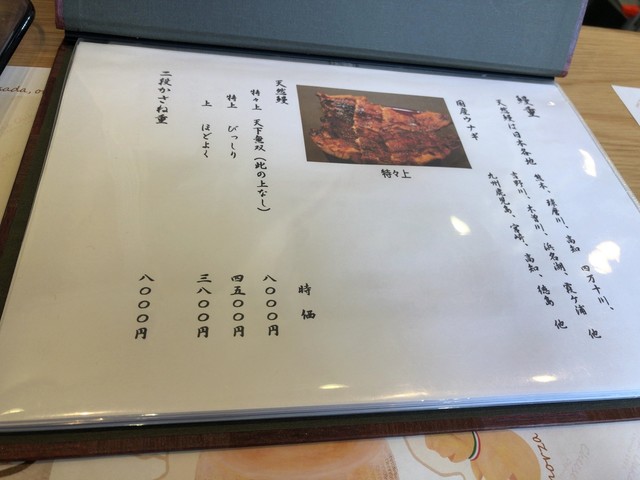 鰻重
天然鰻は日本各地 熊本、球磨川、高知 四万十川、
吉野川、木曽川、浜名湖、霞ケ浦 他
国産ウナギ 九州鹿児島、宮崎、高知、徳島 他
特々上
天然鰻 時価
特々上 天下無双(此の上なし) 八〇〇〇円
特上 びっしり 四五〇〇円
上 ほどよく 三八〇〇円
二段かさね重 八〇〇〇円